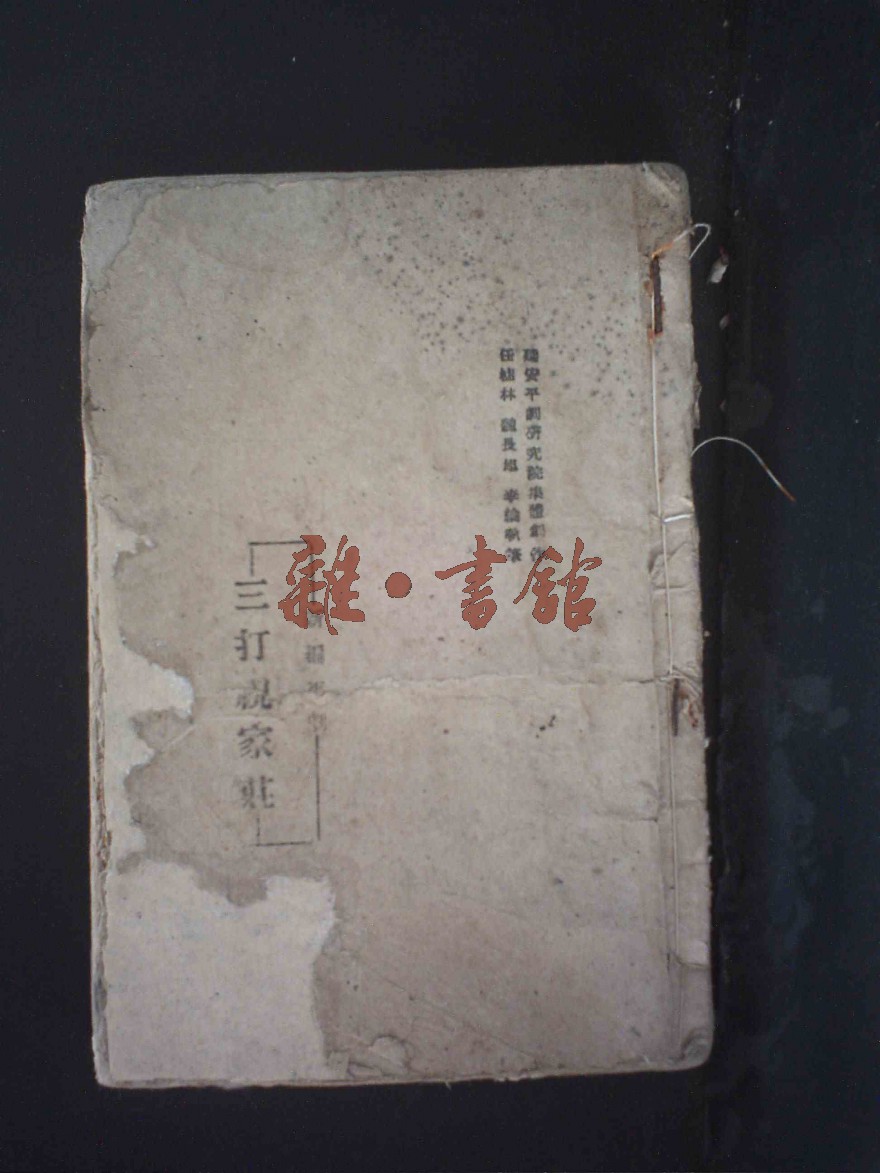 延安平劇研究院集體創作
任桂林 魏晨旭 李綸執筆
新編平劇
三打祝家莊
雜·書館